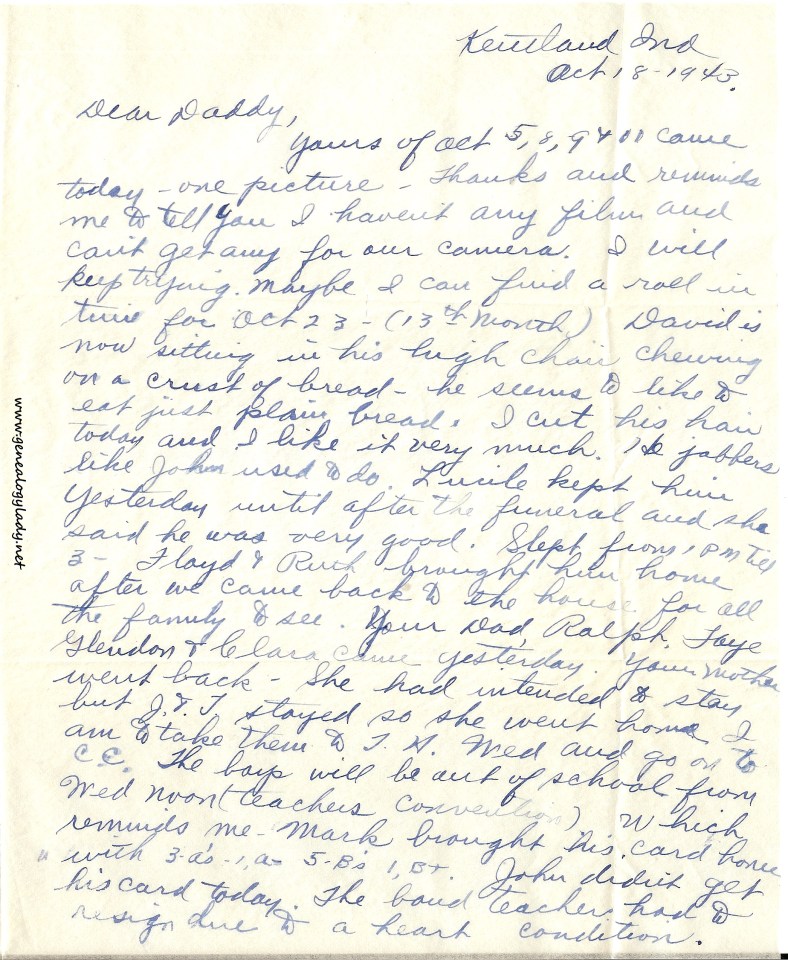 Kentland Ind
Oct 18-1943.
Dear Daddy,
Yours of Oct 5, 8, 9 & 11 came
today - one picture - Thanks and reminds
me to tell you I havent any film and
can't get any for our camera. I will
keep trying. Maybe I can find a roll in
time for Oct 23 - (13th Month) David is
now sitting in his high chair chewing
on a crust of bread - he seems to like to
eat just plain bread. I cut his hair
today and I like it very much. He jabbers
like John used to do. Lucile kept him
yesterday until after the funeral and she
said he was very good. Slept from 1 PM till
3 - Floyd & Ruth brought him home
after we came back to the house for all
the family to see. Your Dad, Ralph, Faye
Glendon & Clara came yesterday. Your Mother
went back - She had intended to stay
but J. & T stayed so she went home. I
am to take them to T. H. Wed and go on to
C.C. The boys will be out of school from
Wed noon (teachers convention) Which
reminds me - Mark brought his card home
with 3-a's -1, a- 5-B's 1, B+. John didn't get
his card today. The band teacher had to
resign due to a heart condition.
www.genealogylady.net